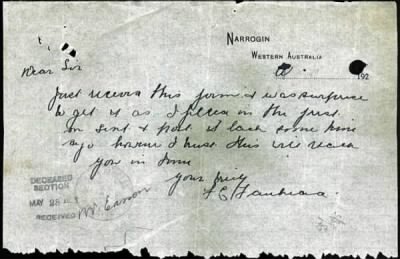 NARROGIN
WESTERN AUSTRALIA
192
Dear Sir
Just receive this form & was surprise
to get it as I filled in the first
on sent & post it back some time
ago however I trust this will reach
you in time
Yours truly
DECEASED
SECTION
MAY 28
RECEIVED